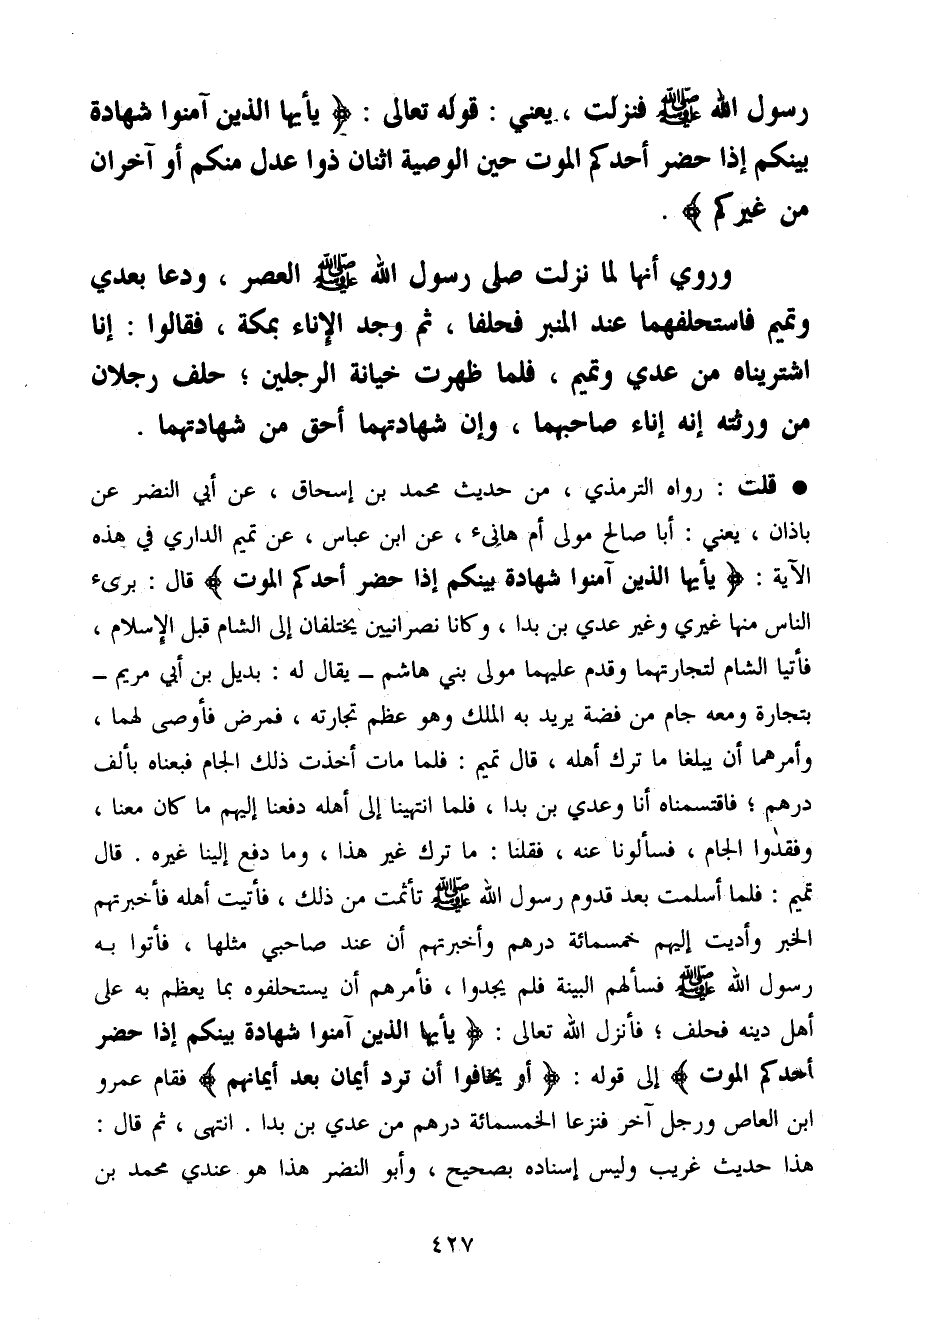 رسول الله ﷺ فنزلت ، يعني : قوله تعالى : ﴿ يأيها الذين آمنوا شهادة
بينكم إذا حضر أحدكم الموت حين الوصية اثنان ذوا عدل منكم أو آخران
من غيركم ﴾ .
وروي أنها لما نزلت صلى رسول الله ﷺ العصر ، ودعا بعدي
وتميم فاستحلفهما عند المنبر فحلفا ، ثم وجد الإناء بمكة ، فقالوا : إنا
اشتريناه من عدي وتميم ، فلما ظهرت خيانة الرجلين ؛ حلف رجلان
من ورثته إنه إناء صاحبهما ، وإن شهادتهما أحق من شهادتهما .
● قلت : رواه الترمذي ، من حديث محمد بن إسحاق ، عن أبي النضر عن
باذان ، يعني : أبا صالح مولى أم هانىء ، عن ابن عباس ، عن تميم الداري في هذه
الآية : ﴿ يأيها الذين آمنوا شهادة بينكم إذا حضر أحدكم الموت ﴾ قال : برىء
الناس منها غيري وغير عدي بن بدا ، وكانا نصرانيين يختلفان إلى الشام قبل الإسلام ،
فأتيا الشام لتجارتهما وقدم عليهما مولى بني هاشم – يقال له : بديل بن أبي مريم –
بتجارة ومعه جام من فضة يريد به الملك وهو عظم تجارته ، فمرض فأوصى لهما ،
وأمرهما أن يبلغا ما ترك أهله ، قال تميم : فلما مات أخذت ذلك الجام فبعناه بألف
درهم ؛ فاقتسمناه أنا وعدي بن بدا ، فلما انتهينا إلى أهله دفعنا إليهم ما كان معنا ،
وفقدوا الجام ، فسألونا عنه ، فقلنا : ما ترك غير هذا ، وما دفع إلينا غيره . قال
تميم : فلما أسلمت بعد قدوم رسول الله ﷺ تأثمت من ذلك ، فأتيت أهله فأخبرتهم
الخبر وأديت إليهم خمسمائة درهم وأخبرتهم أن عند صاحبي مثلها ، فأتوا به
رسول الله ﷺ فسألهم البينة فلم يجدوا ، فأمرهم أن يستحلفوه بما يعظم به على
أهل دينه فحلف ؛ فأنزل الله تعالى : ﴿ يأيها الذين آمنوا شهادة بينكم إذا حضر
أحدكم الموت ﴾ إلى قوله : ﴿ أو يخافوا أن ترد أيمان بعد أيمانهم ﴾ فقام عمرو
ابن العاص ورجل آخر فنزعا الخمسمائة درهم من عدي بن بدا . انتهى ، ثم قال :
هذا حديث غريب وليس إسناده بصحيح ، وأبو النضر هذا هو عندي محمد بن
٤٢٧